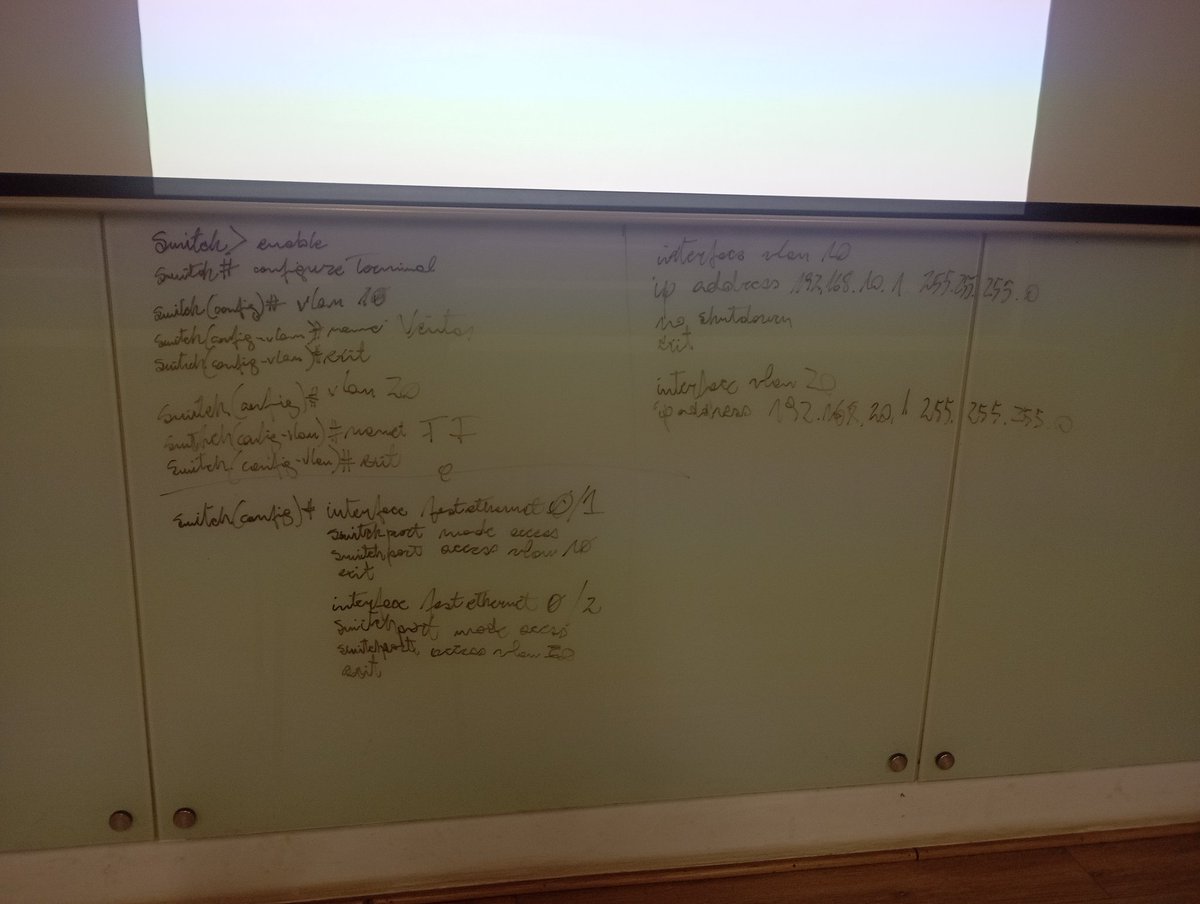 Switch> enable
Switch# configure Terminal
Switch(config)# vlan 10
Switch(config-vlan)# name Ventas
Switch(config-vlan)# exit
Switch(config)# vlan 20
Switch(config-vlan)# name TI
Switch(config-vlan)# exit
Switch(config)# interface fastethernet 0/1
switchport mode access
switchport access vlan 10
exit
interface fastethernet 0/2
switchport mode access
switchport access vlan 20
exit
interface vlan 10
ip address 192.168.10.1 255.255.255.0
no shutdown
exit
interface vlan 20
ip address 192.168.20.1 255.255.255.0